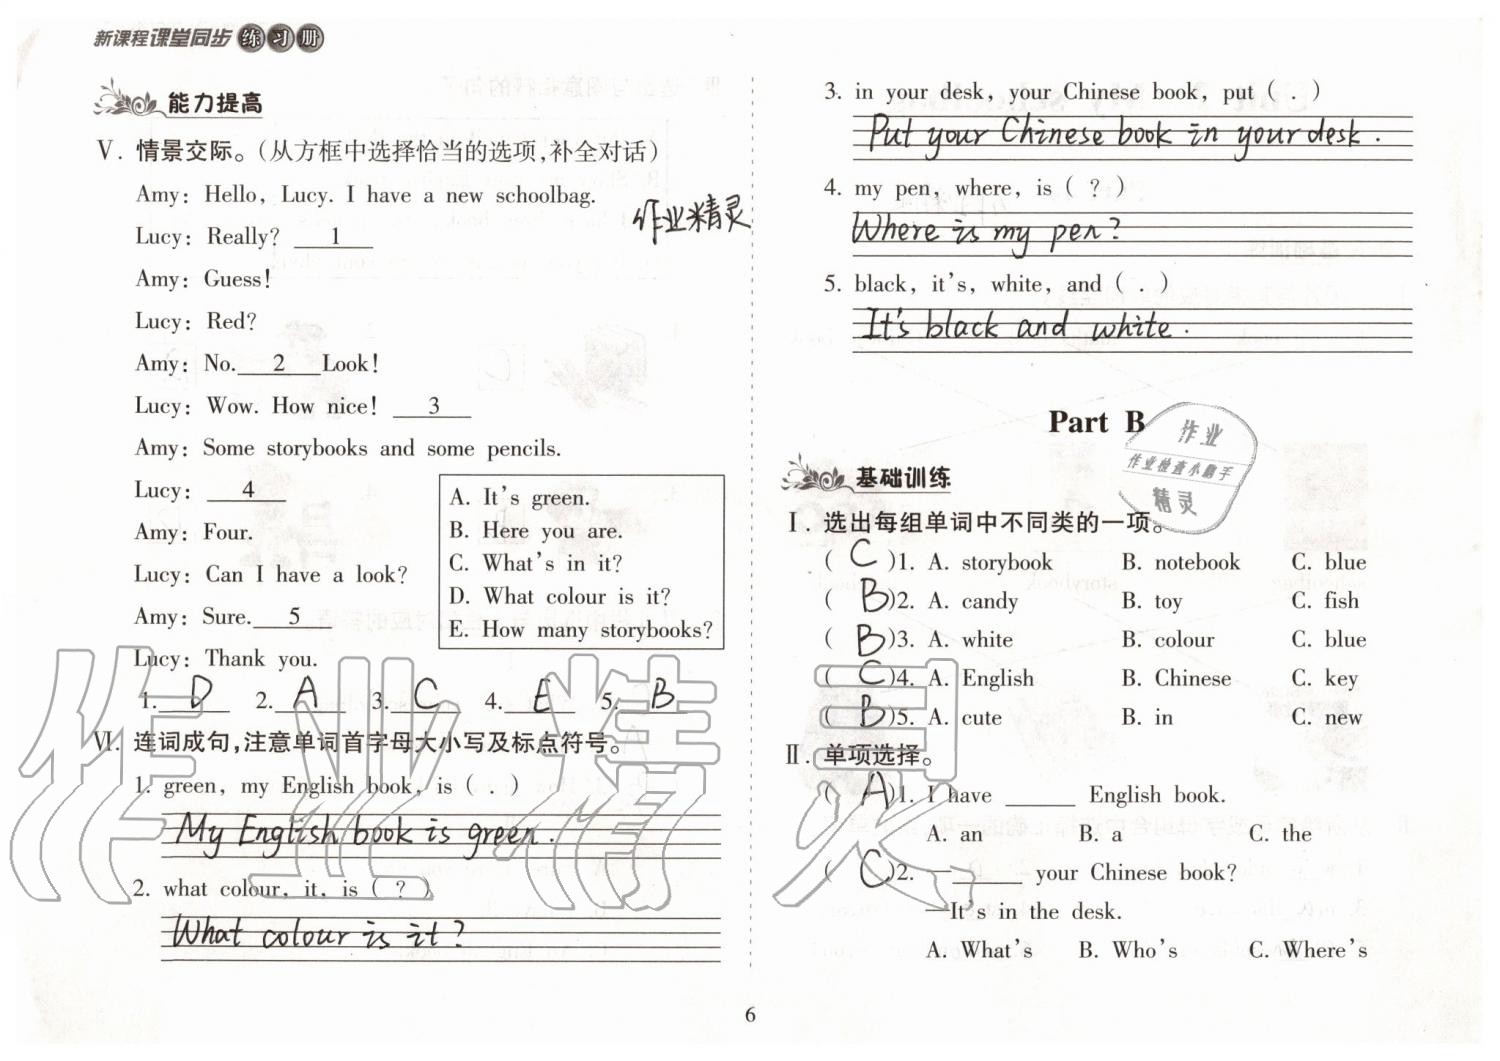 新课程课堂同步练习册
能力提高
Ⅴ. 情景交际。(从方框中选择恰当的选项,补全对话)
Amy: Hello, Lucy. I have a new schoolbag.
Lucy: Really? 1
Amy: Guess!
Lucy: Red?
Amy: No. 2 Look!
Lucy: Wow. How nice! 3
Amy: Some storybooks and some pencils.
Lucy: 4
Amy: Four.
Lucy: Can I have a look?
Amy: Sure. 5
Lucy: Thank you.
A. It's green.
B. Here you are.
C. What's in it?
D. What colour is it?
E. How many storybooks?
1. D 2. A 3. C 4. E 5. B
Ⅵ. 连词成句,注意单词首字母大小写及标点符号。
1. green, my English book, is ( . )
My English book is green.
2. what colour, it, is ( ? )
What colour is it?
作业精灵
3. in your desk, your Chinese book, put ( . )
Put your Chinese book in your desk.
4. my pen, where, is ( ? )
Where is my pen?
5. black, it's, white, and ( . )
It's black and white.
Part B
作业
作业检查小帮手
精灵
基础训练
Ⅰ. 选出每组单词中不同类的一项。
( C )1. A. storybook B. notebook C. blue
( B )2. A. candy B. toy C. fish
( B )3. A. white B. colour C. blue
( C )4. A. English B. Chinese C. key
( B )5. A. cute B. in C. new
Ⅱ. 单项选择。
( A )1. I have ______ English book.
A. an B. a C. the
( C )2. —______ your Chinese book?
—It's in the desk.
A. What's B. Who's C. Where's
作业精灵
6